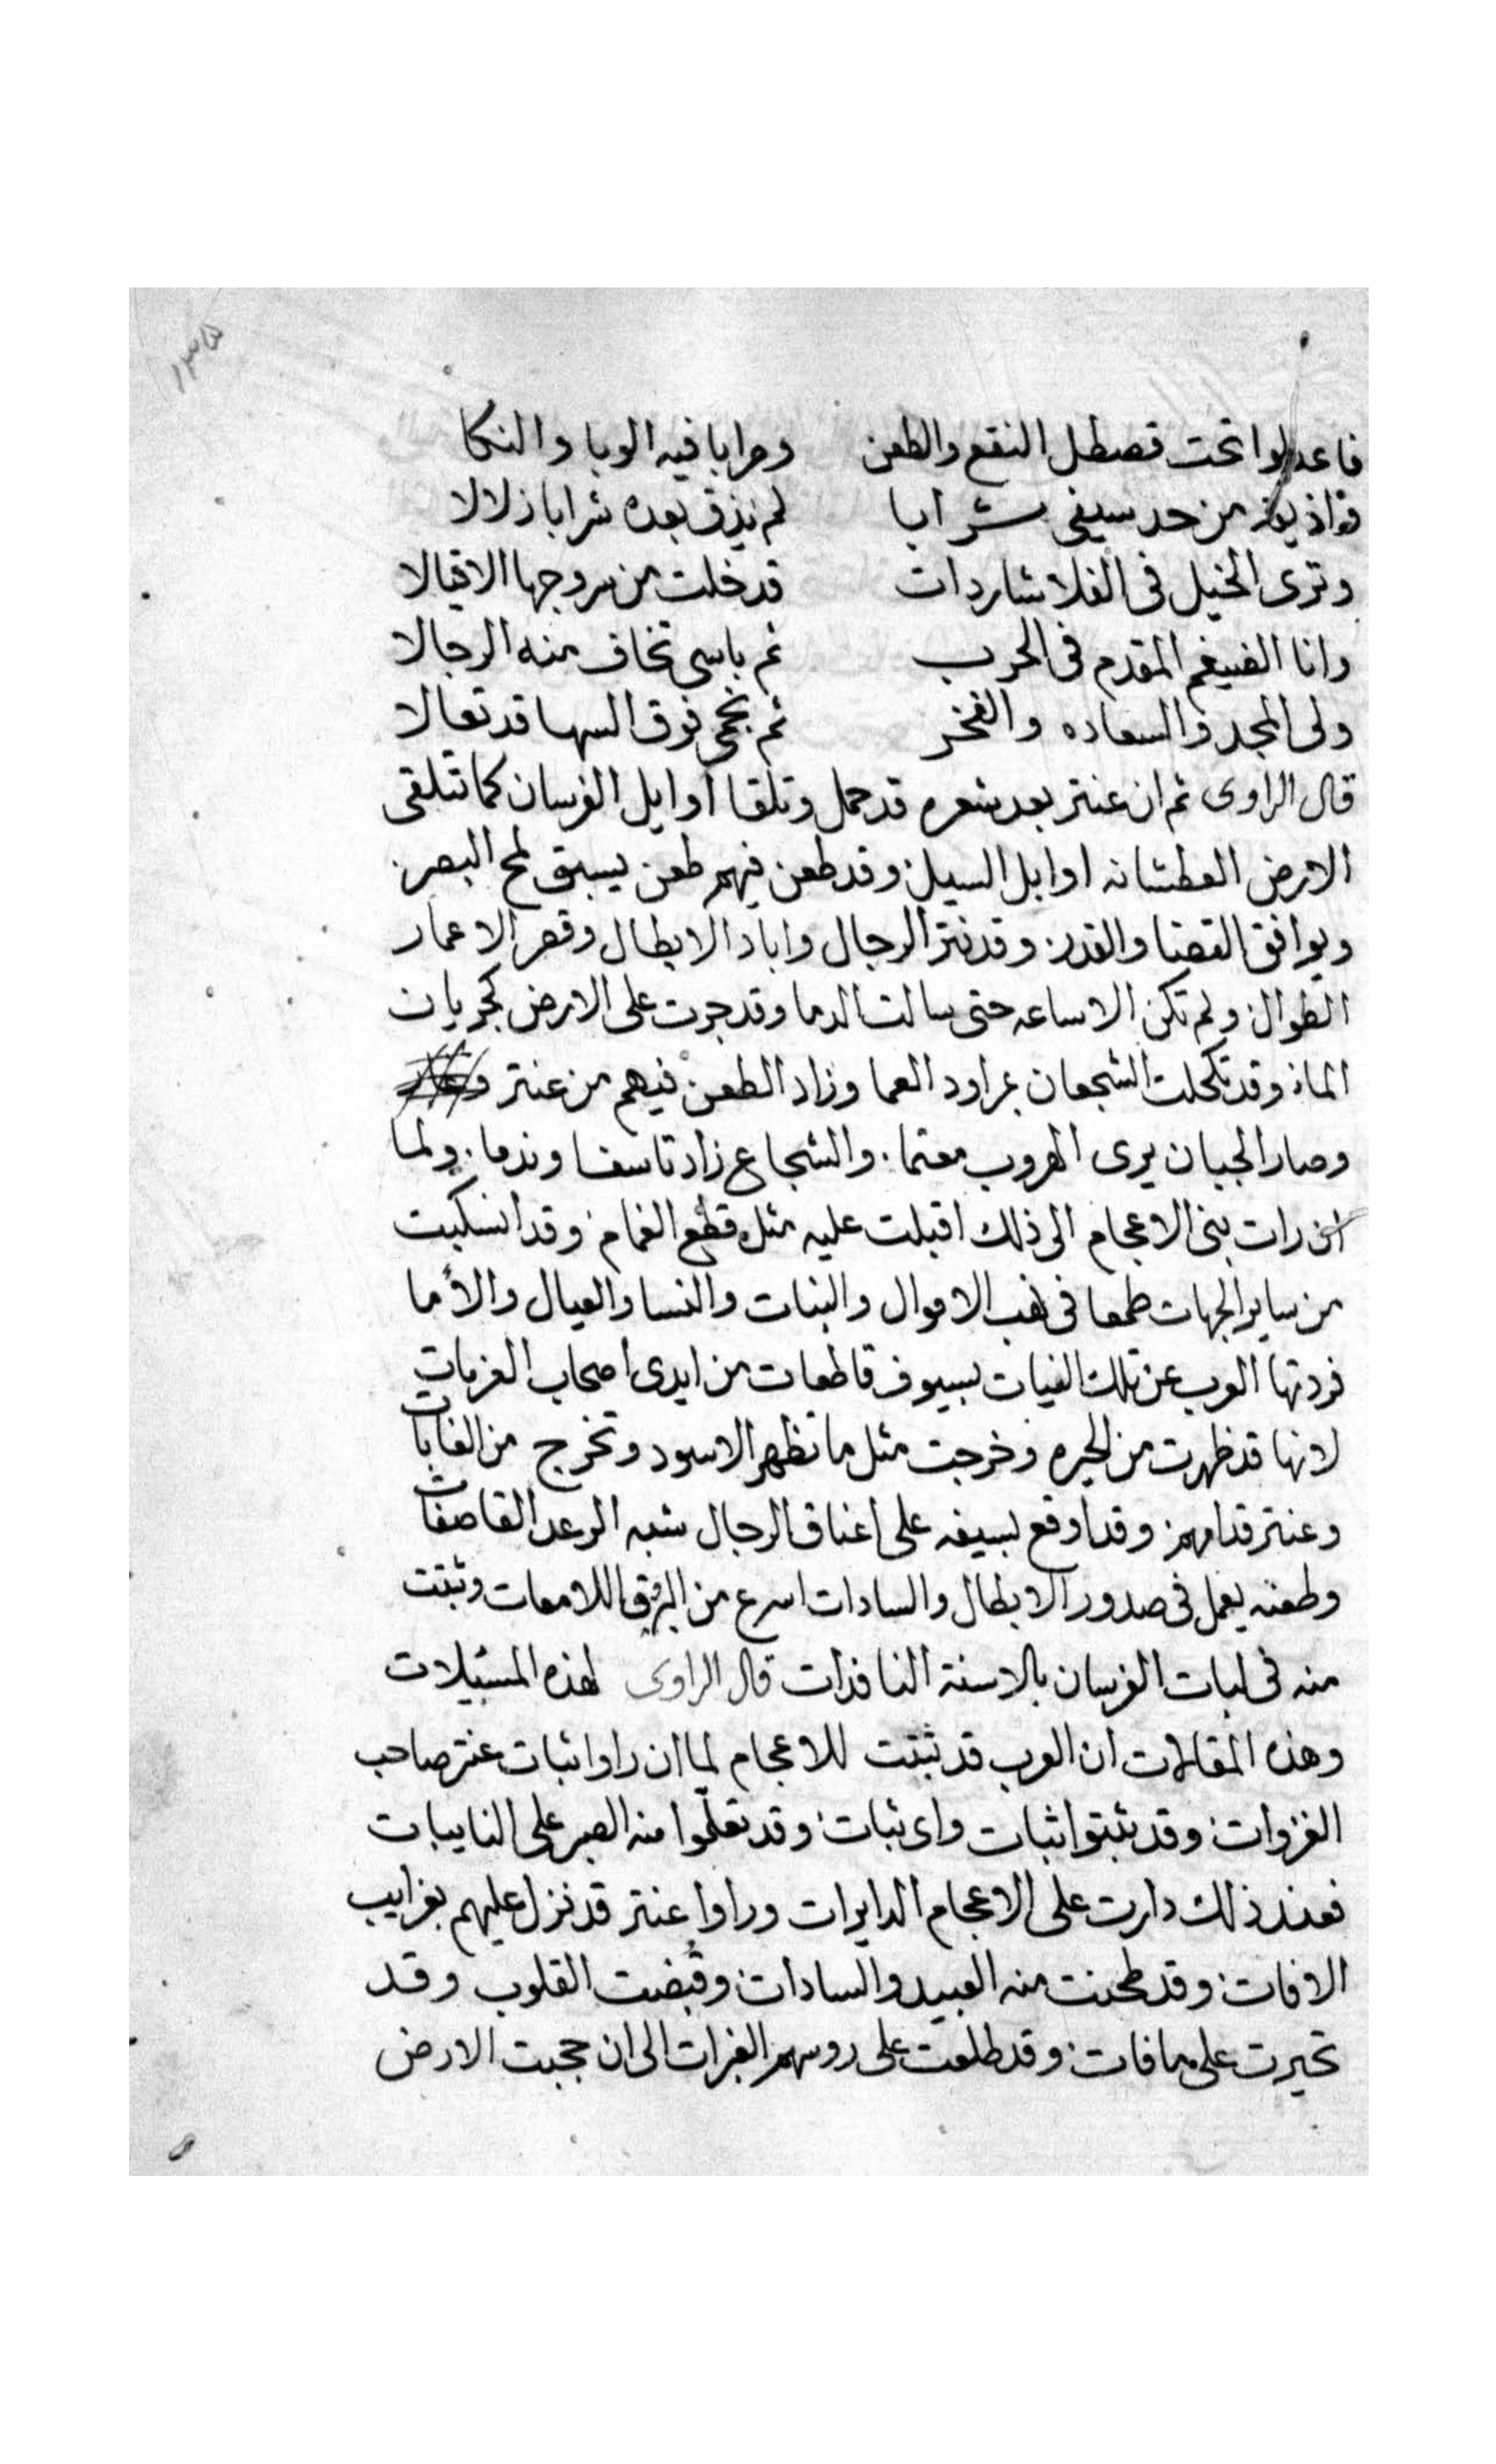 ١٣٥
فاعدلوا تحت قصطل النقع والطعن وحرابا فيه الوبا والنكا
فواذيقه من حد سيفى شرابا لم يذق بعده شرابا زلالا
وترى الخيل فى الفلا شاردات قد خلت من سروجها الاقيالا
وانا الضيغم المقدم فى الحرب ثم باسى تخاف منه الرجالا
ولى المجد والسعاده والفخر ثم نجمى فوق السها قد تعالا
قال الراوى ثم ان عنتر بعد شعره قد حمل وتلقا اوايل الفرسان كما تتلقى
الارض العطشانه اوابل السيل وقد طعن فيهم طعن يسبق لمح البصر
ويوافق القضا والقدر وقد نثر الرجال واباد الابطال وقصر الاعمار
الطوال ولم تكن الا ساعه حتى سالت الدما وقد جرت على الارض كجريان
الماء وقد تكحلت الشجعان بمراود العما وزاد الطعن فيهم من عنتر
وصار الجبان يرى الهروب مغتما والشجاع زاد تاسفا وندما ولما
ان رات بنى الاعجام الى ذلك اقبلت عليه مثل قطع الغمام وقد انسكبت
من ساير الجهات طمعا فى نهب الاموال والبنات والنسا والعيال والأما
فردتها العرب عن تلك النيات بسيوف قاطعات من ايدى اصحاب العزمات
لانها قد ظهرت من الحيره وخرجت مثل ما تظهر الاسود وتخرج من الغابات
وعنتر قدامهم وقد اوقع بسيفه على اعناق الرجال شبه الرعد القاصفات
وطعنه يعمل فى صدور الابطال والسادات اسرع من البرق اللامعات وثبتت
منه فى لبات الفرسان بالاسنة النافذات قال الراوى لهذه المسيلات
وهذه المقالات ان العرب قد ثبتت للاعجام لما ان راوا ثبات عنتر صاحب
الغزوات وقد ثبتوا ثبات واى ثبات وقد تعلموا منه الصبر على النايبات
فعند ذلك دارت على الاعجام الدايرات وراوا عنتر قد نزل عليهم بغرايب
الافات وقد طحنت منه العبيد والسادات وقبضت القلوب وقد
تحيرت على ما فات وقد طلعت على روسهم الغبرات الى ان حجبت الارض